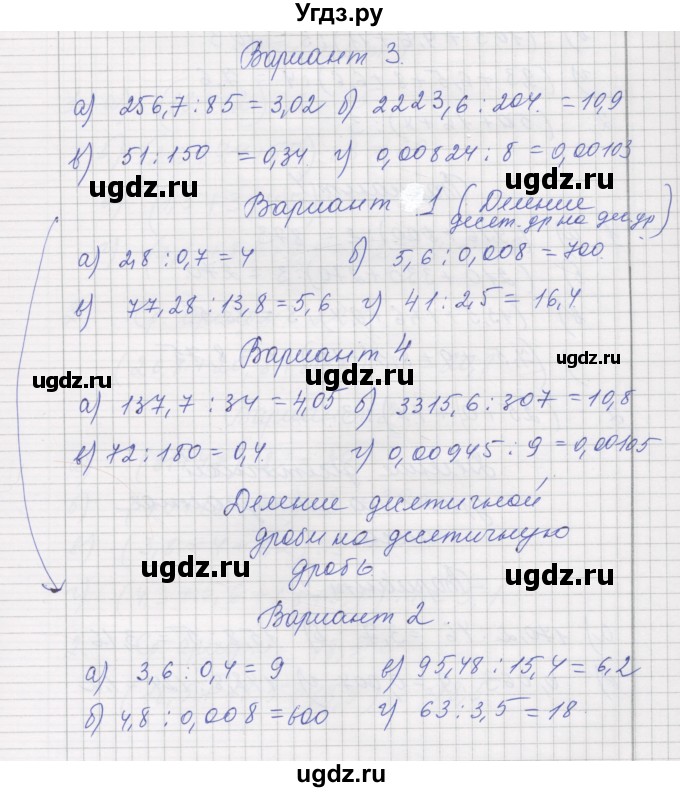 Угдз.ру
Вариант 3.
а) 256,7 : 85 = 3,02 б) 2223,6 : 204. = 10,9
в) 51 : 150 = 0,34 г) 0,00824 : 8 = 0,00103
ugdz.ru ugdz.ru
Вариант 1 (Деление
десят. др на дес. др.)
а) 2,8 : 0,7 = 4 б) 5,6 : 0,008 = 700.
в) 77,28 : 13,8 = 5,6 г) 41 : 2,5 = 16,4
Вариант 4.
ugdz.ru ugdz.ru ugdz.ru
а) 137,7 : 34 = 4,05 б) 3315,6 : 307 = 10,8
в) 72 : 180 = 0,4. г) 0,00945 : 9 = 0,00105
Деление десятичной
дроби на десятичную
дробь
ugdz.ru ugdz.ru
Вариант 2.
а) 3,6 : 0,4 = 9 в) 95,48 : 15,4 = 6,2
б) 4,8 : 0,008 = 600 г) 63 : 3,5 = 18
ugdz.ru ugdz.ru
ugdz.ru